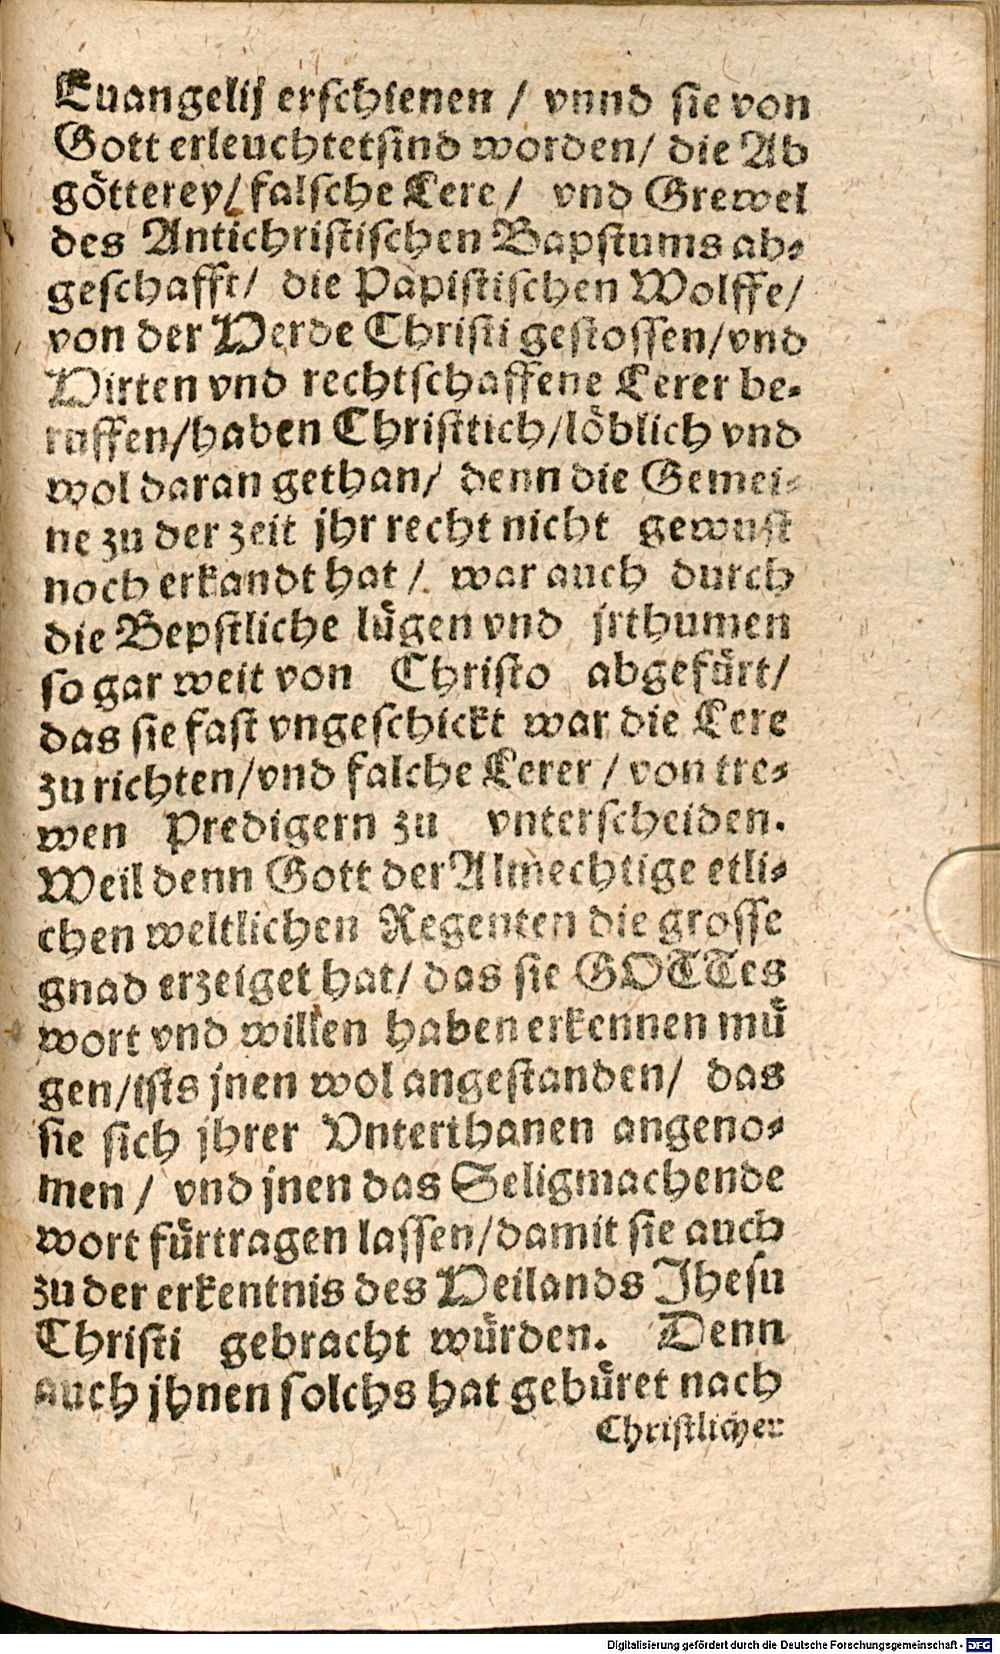 Euangelij erschienen / vnnd sie von
Gott erleuchtetsind worden/ die Ab
götterey/ falsche Lere / vnd Grewel
des Antichristischen Bapstums ab-
geschafft/ die Papistischen Wolffe/
von der Herde Christi gestossen/vnd
Hirten vnd rechtschaffene Lerer be-
ruffen/haben Christtich/löblich vnd
wol daran gethan/ denn die Gemei-
ne zu der zeit jhr recht nicht gewust
noch erkandt hat / war auch durch
die Bepstliche lügen vnd jrthumen
so gar weit von Christo abgefürt/
das sie fast vngeschickt war die Lere
zu richten/vnd falche Lerer / von tre-
wen Predigern zu vnterscheiden.
Weil denn Gott der Almechtige etli-
chen weltlichen Regenten die grosse
gnad erzeiget hat/ das sie GOTTes
wort vnd willen haben erkennen mü
gen/ists jnen wol angestanden/ das
sie sich jhrer Vnterthanen angeno-
men / vnd jnen das Seligmachende
wort fürtragen lassen/damit sie auch
zu der erkentnis des Heilands Jhesu
Christi gebracht würden. Denn
auch jhnen solchs hat gebüret nach
Christlicher
Digitalisierung gefördert durch die Deutsche Forschungsgemeinschaft - DFG